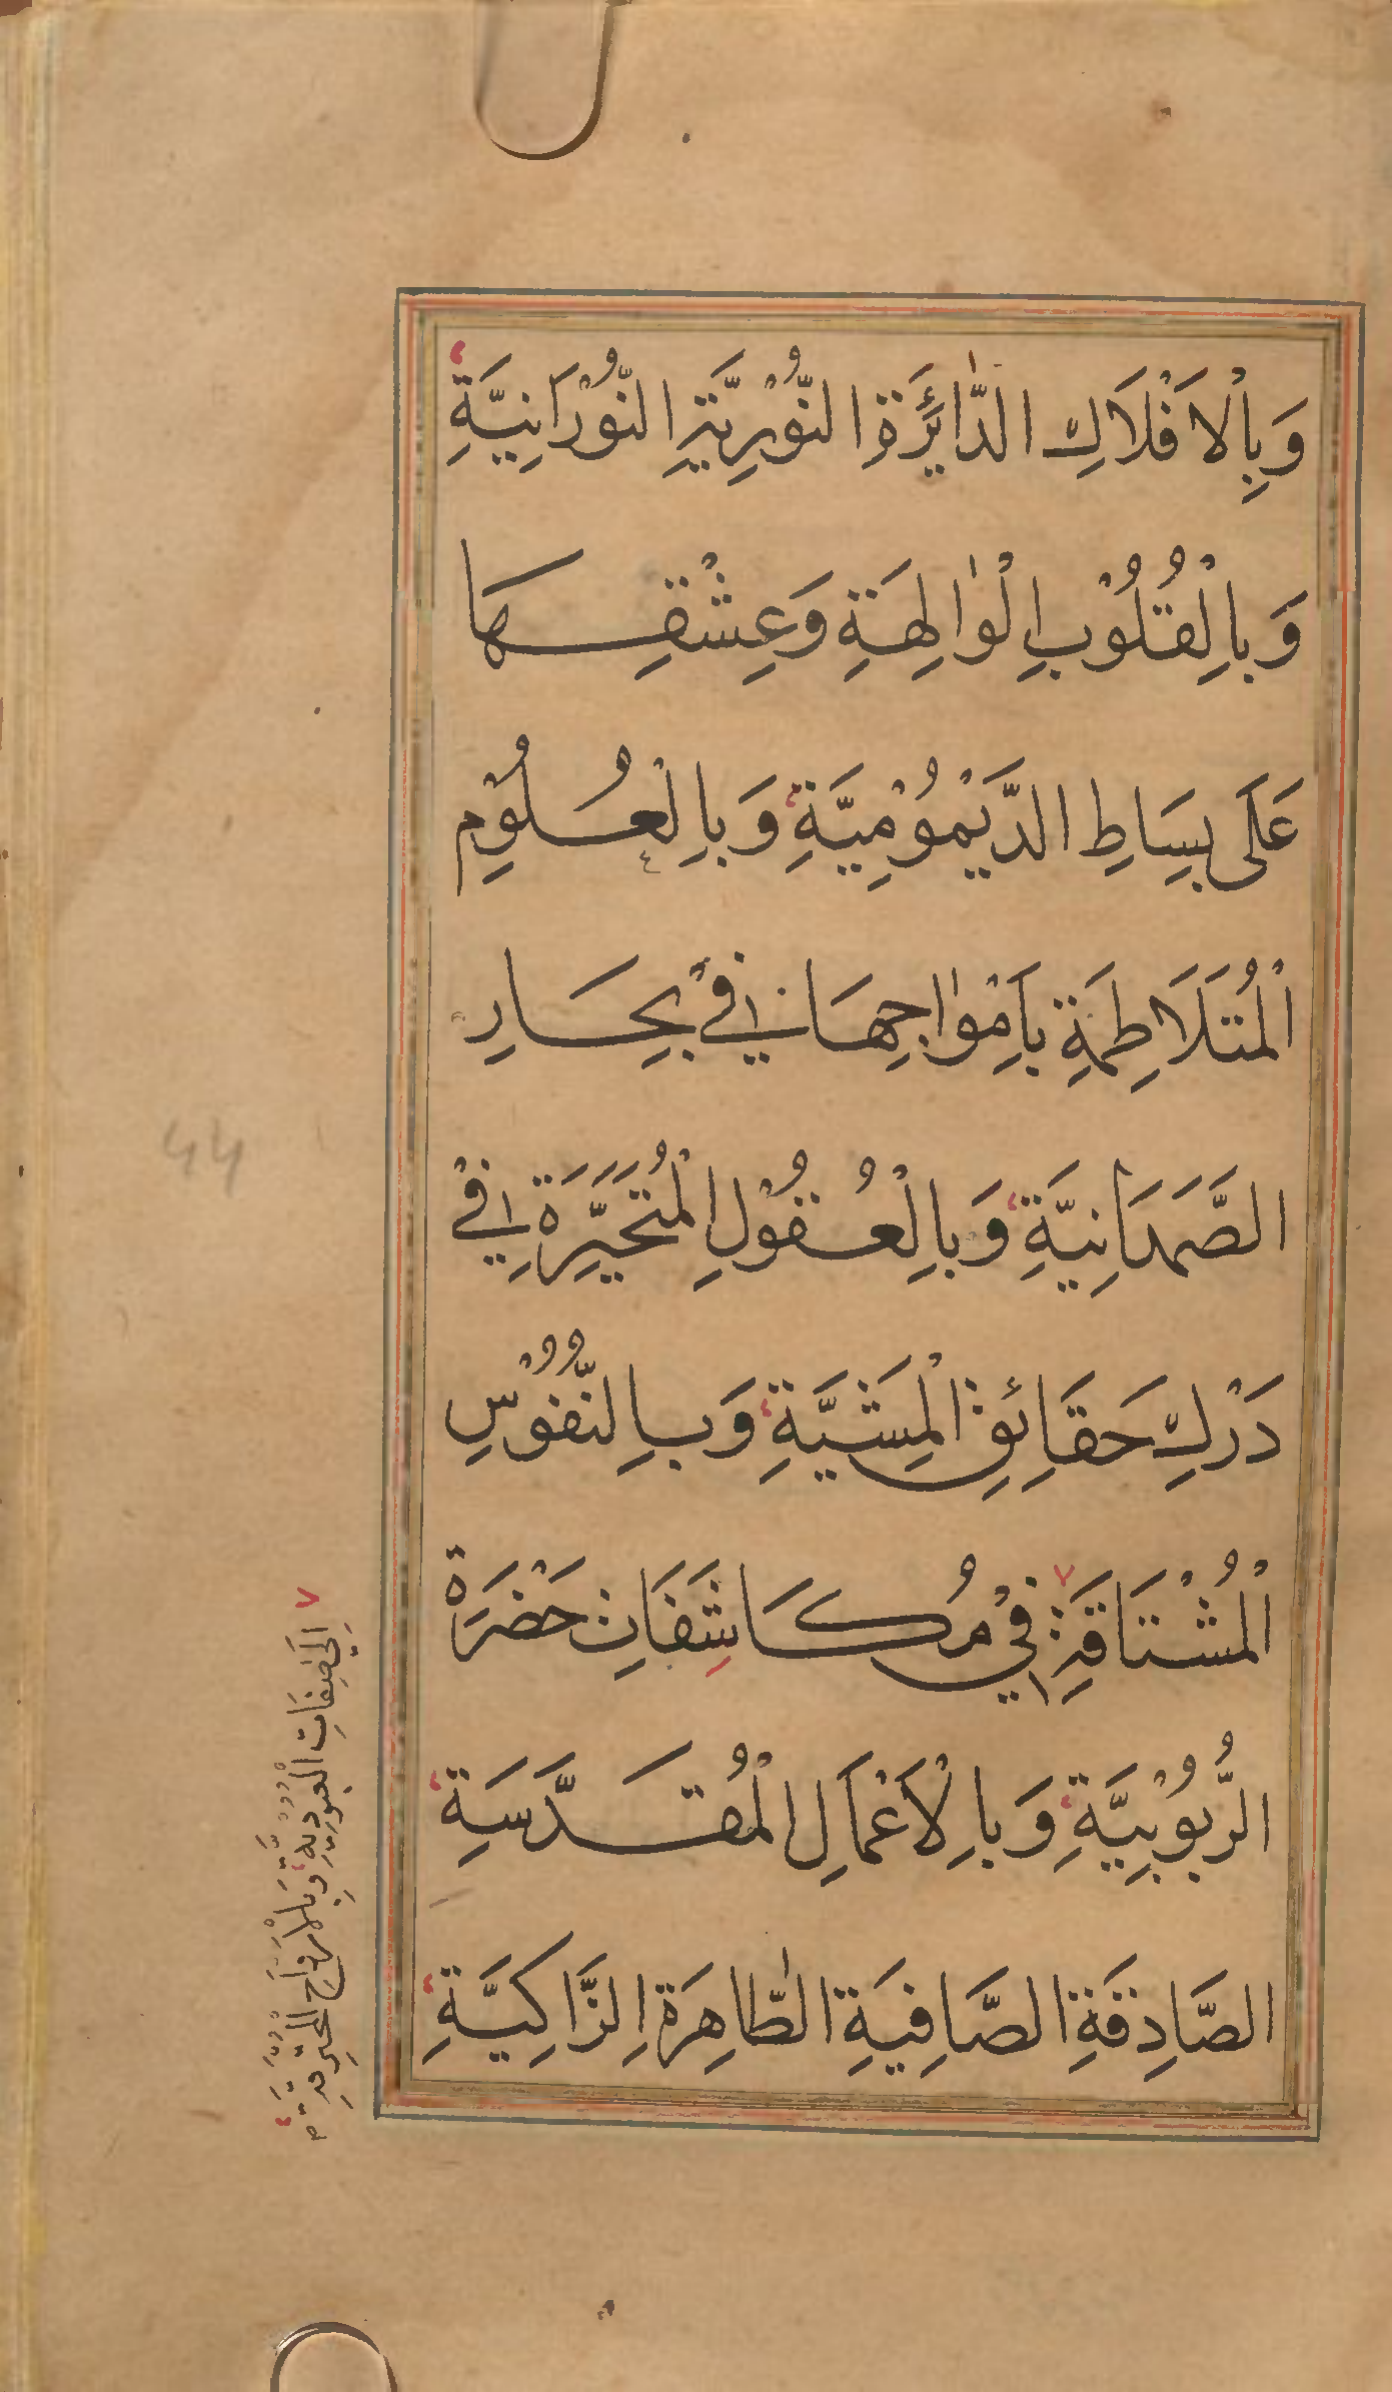 وَبِاْلاَفْلَاكِ الدّٰائِرَةِ النُّوْرِيَّةِ النُّوْرَانِيَّةِ
وَبِالْقُلُوْبِ الْوٰالِهَةِ وَعِشْقِهَا
عَلَى بِسَاطِ الدَّيْمُوْمِيَّةِ وَبِالْعُلُوْمِ
الْمُتَلَاطِمَةِ بِاَمْوٰاجِهَا فِيْ بِحَارِ
الصَّمَدَانِيَّةِ وَبِالْعُقُوْلِ الْمُتَحَيِّرَةِ فِيْ
دَرْكِ حَقَائِقِ الْمَشِيَّةِ وَبِالنُّفُوْسِ
الْمُشْتَاقَةِ ٧ فِيْ مُكَاشَفَاتِ حَضْرَةْ
الرُّبُوْبِيَّةِ وَبِالْاَعْمَالِ الْمُقَدَّسَةِ
الصَّادِقَةِ الصَّافِيَةِ الطّٰاهِرَةِ الزَّاكِيَّةِ
٧ اِلَى صِفَاتِ الْعُبُوْدِيَّةِ وَبِالْاَرْوَاحِ الْمُحْتَرِقَةِ
44